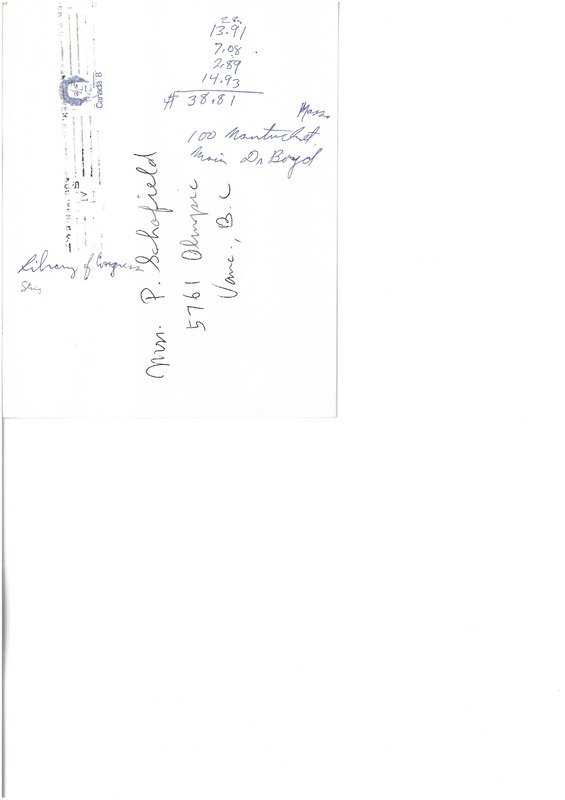 22
13.91
7.08
2.89
14.93
$ 38.81
Mass.
100 Nantucket
Main Dr Boyd
Canada 8
Library of Congress
Mrs. P. Schofield
5761 Olympic
Vanc., B.C